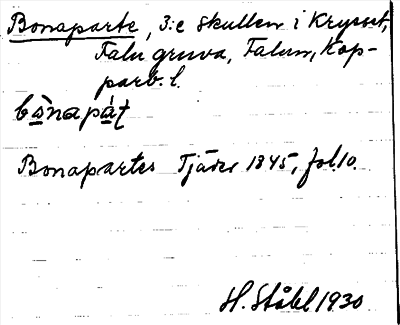 Bonaparte, 3:e skullen i Krysset,
Falu gruva, Falun, Kop-
parb. l.
bònapáṭ
Bonapartes Tjäder 1845, fol. 10.
H. Ståhl 1930